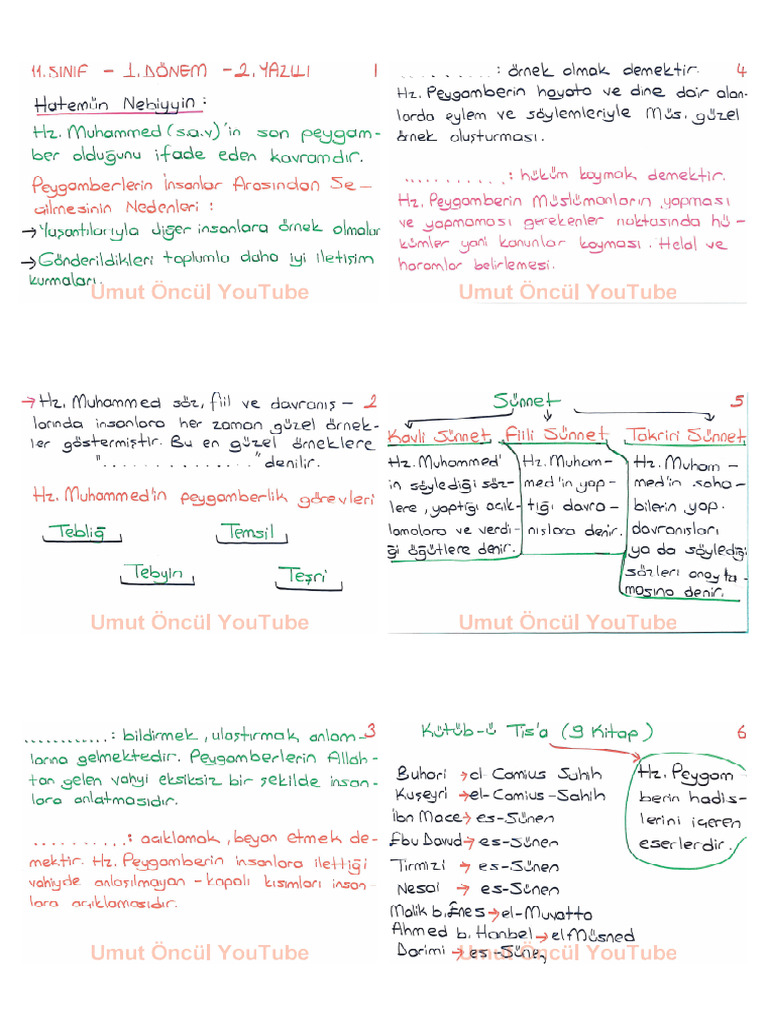 11.SINIF - 1.DÖNEM - 2.YAZILI 1
Hatemün Nebiyyin:
Hz. Muhammed (s.a.v)'in son peygam-
ber olduğunu ifade eden kavramdır.
Peygamberlerin İnsanlar Arasından Se-
çilmesinin Nedenleri:
→Yaşantılarıyla diğer insanlara örnek olmaları
→Gönderildikleri toplumla daha iyi iletişim
kurmaları.
Umut Öncül YouTube
→Hz. Muhammed söz, fiil ve davranış- 2
larında insanlara her zaman güzel örnek-
ler göstermiştir. Bu en güzel örneklere
"..............." denilir.
Hz. Muhammed'in peygamberlik görevleri
Tebliğ Temsil
Tebyin Teşri
Umut Öncül YouTube
............: bildirmek, ulaştırmak anlam- 3
larına gelmektedir. Peygamberlerin Allah-
tan gelen vahyi eksiksiz bir şekilde insan-
lara anlatmasıdır.
..........: açıklamak, beyan etmek de-
mektir. Hz. Peygamberin insanlara ilettiği
vahiyde anlaşılmayan-kapalı kısımları insan-
lara açıklamasıdır.
Umut Öncül YouTube
..........: örnek olmak demektir. 4
Hz. Peygamberin hayata ve dine dair alan-
larda eylem ve söylemleriyle Müs. güzel
örnek oluşturması.
...........: hüküm koymak demektir.
Hz. Peygamberin Müslümanların, yapması
ve yapmaması gerekenler noktasında hü-
kümler yani kanunlar koyması. Helal ve
haramlar belirlemesi.
Umut Öncül YouTube
Sünnet 5
Kavli Sünnet Fiili Sünnet Takriri Sünnet
Hz. Muhammed'
in söylediği söz-
lere, yaptığı açık-
lamalara ve verdi-
ği öğütlere denir.
Hz. Muham-
med'in yap-
tığı davra-
nışlara denir.
Hz. Muham-
med'in saha-
bilerin yap.
davranışları
ya da söylediği
sözleri onayla-
masına denir.
Umut Öncül YouTube
Kütüb-ü Tis'a (9 Kitap) 6
Buhari →el-Camius Sahih
Kuşeyri →el-Camius-Sahih
İbn Mace →es-Sünen
Ebu Davud →es-Sünen
Tirmizi → es-Sünen
Nesai → es-Sünen
Malik b. Enes →el-Muvatta
Ahmed b. Hanbel →el Müsned
Darimi → es-Sünen
Hz. Peygam
berin hadis-
lerini içeren
eserlerdir.
Umut Öncül YouTube